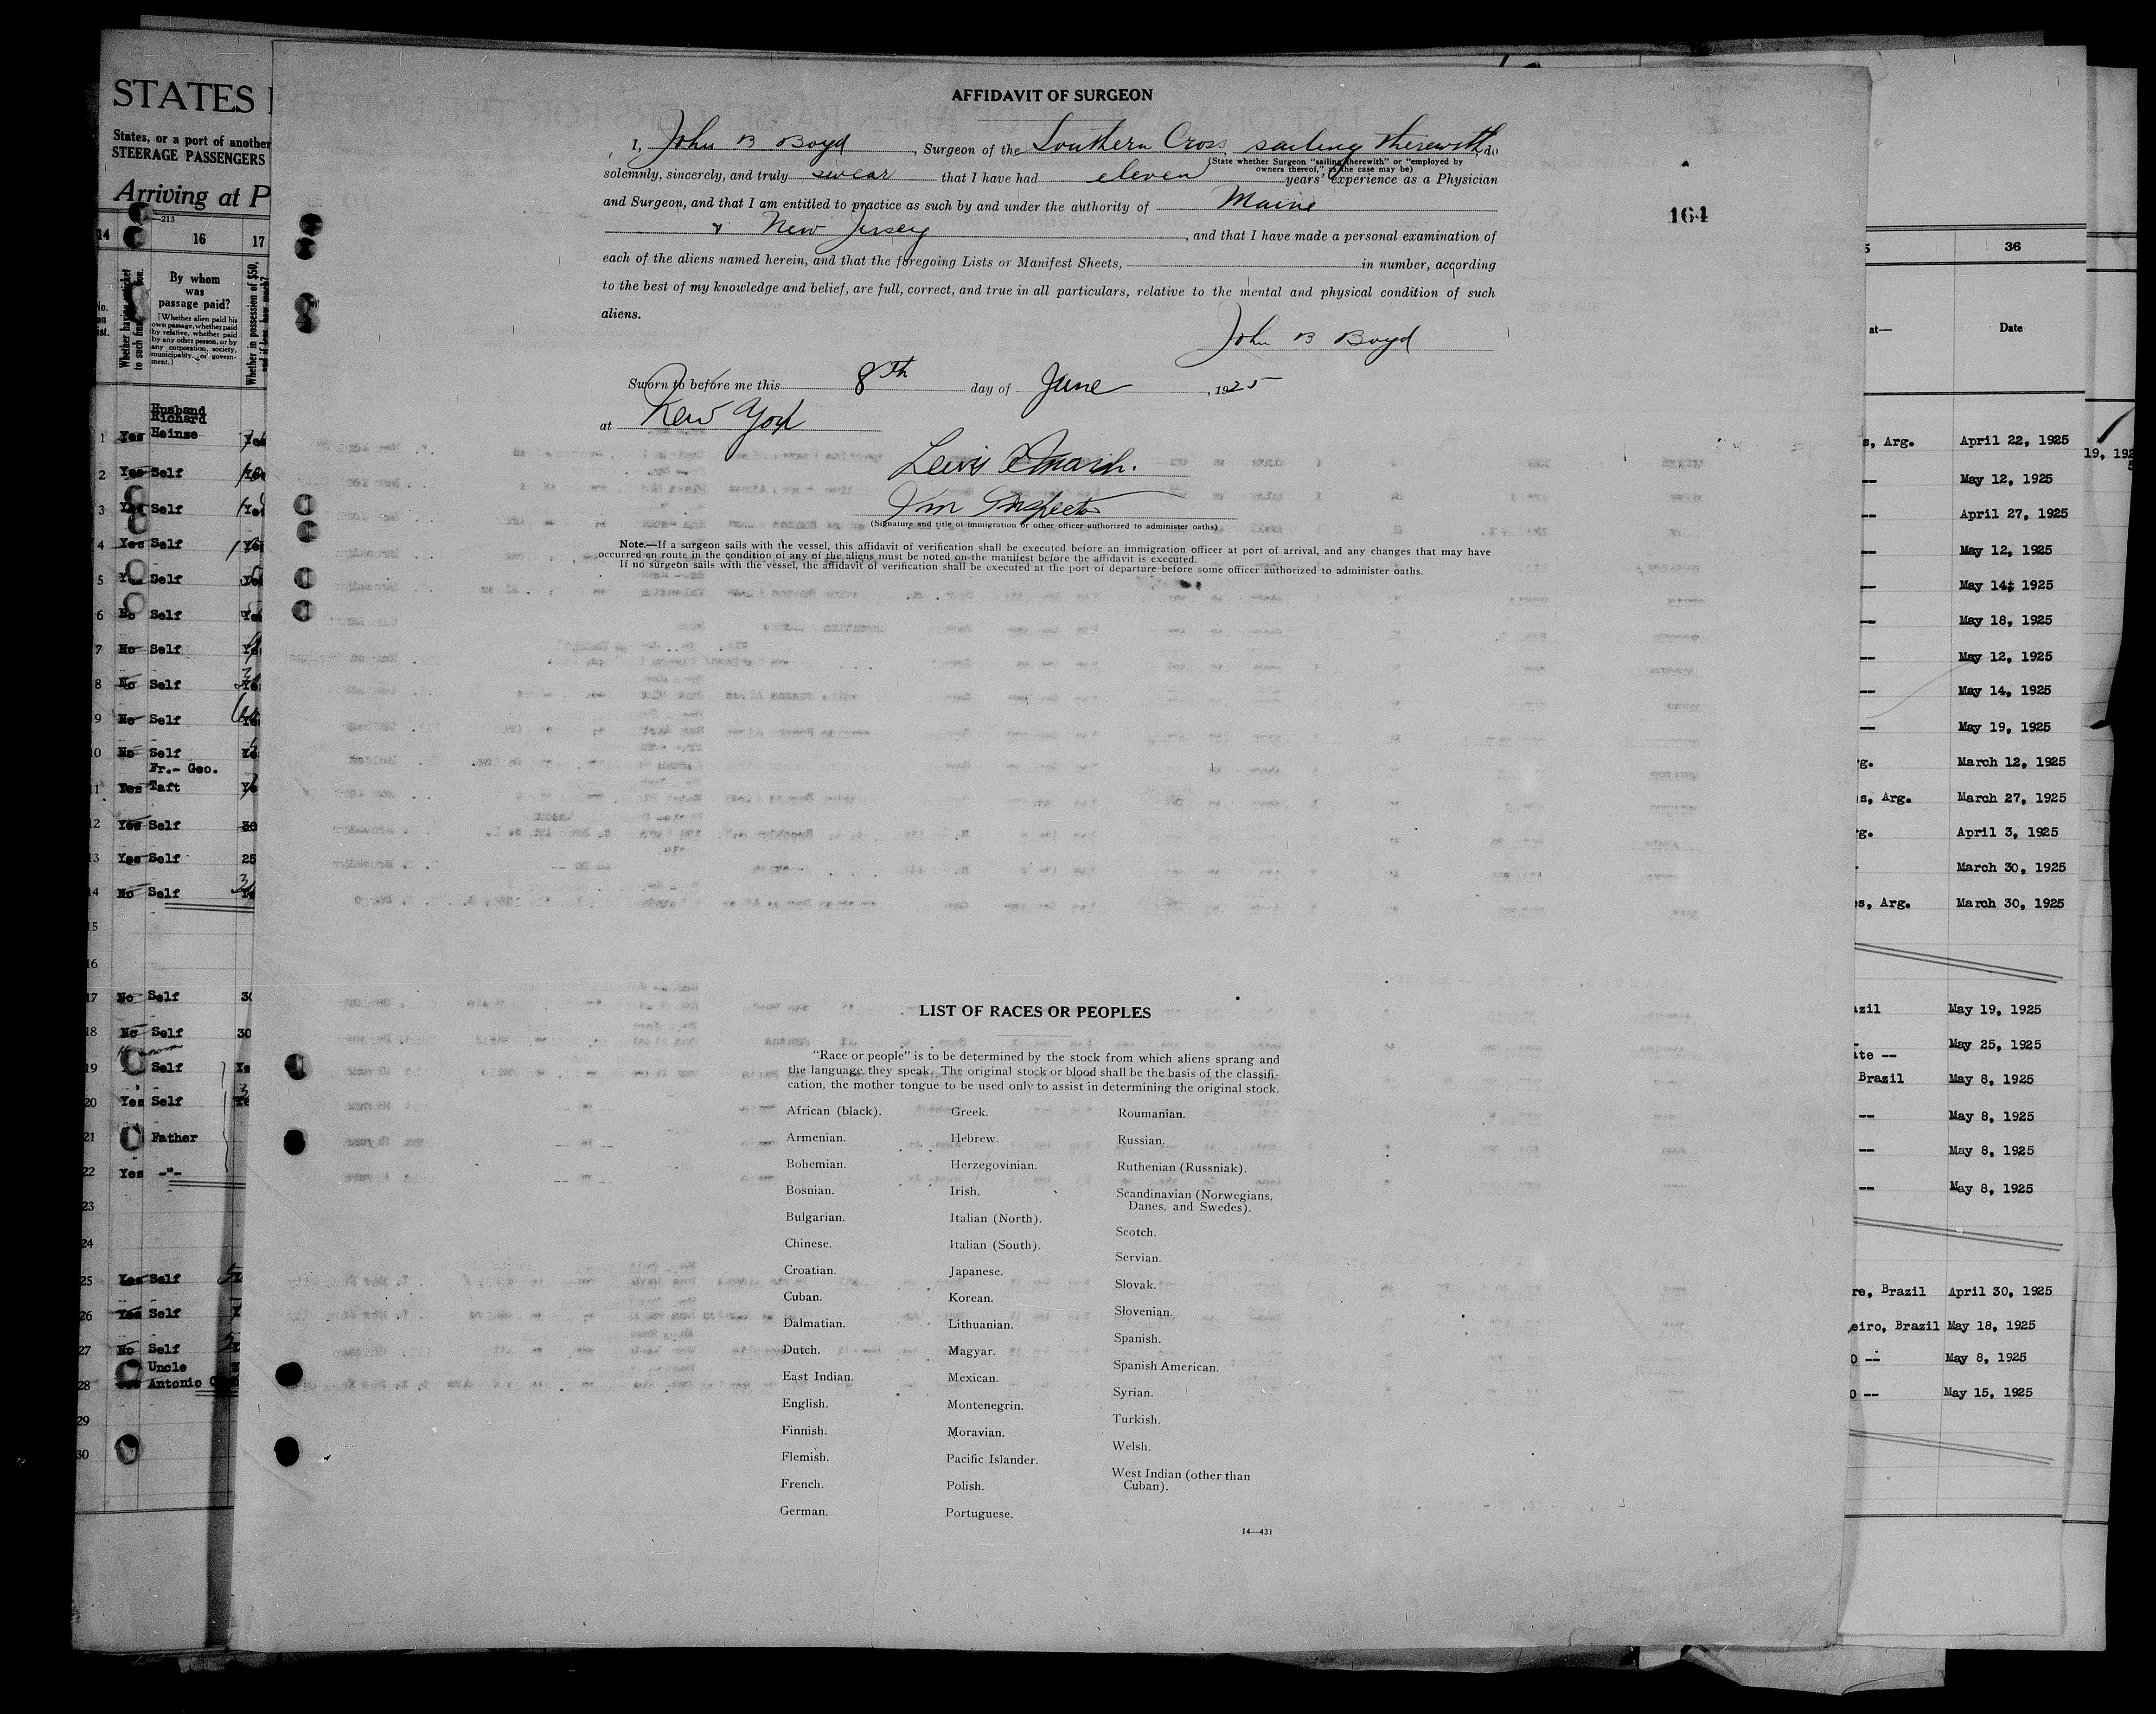 AFFIDAVIT OF SURGEON
I, John B Boyd, Surgeon of the Southern Cross, sailing therewith, do
(State whether Surgeon "sailing therewith" or "employed by
owners thereof," as the case may be)
solemnly, sincerely, and truly swear that I have had eleven years' experience as a Physician
and Surgeon, and that I am entitled to practice as such by and under the authority of Maine
& New Jersey, and that I have made a personal examination of
164
each of the aliens named herein, and that the foregoing Lists or Manifest Sheets, in number, according
to the best of my knowledge and belief, are full, correct, and true in all particulars, relative to the mental and physical condition of such
aliens.
John B Boyd
Sworn to before me this 8th day of June, 1925
at New York
Lewis
Im Inspector
(Signature and title of immigration or other officer authorized to administer oaths)
Note.—If a surgeon sails with the vessel, this affidavit of verification shall be executed before an immigration officer at port of arrival, and any changes that may have
occurred en route in the condition of any of the aliens must be noted on the manifest before the affidavit is executed.
If no surgeon sails with the vessel, the affidavit of verification shall be executed at the port of departure before some officer authorized to administer oaths.
LIST OF RACES OR PEOPLES
"Race or people" is to be determined by the stock from which aliens sprang and
the language they speak. The original stock or blood shall be the basis of the classifi-
cation, the mother tongue to be used only to assist in determining the original stock.
African (black).
Armenian.
Bohemian.
Bosnian.
Bulgarian.
Chinese.
Croatian.
Cuban.
Dalmatian.
Dutch.
East Indian.
English.
Finnish.
Flemish.
French.
German.
Greek.
Hebrew.
Herzegovinian.
Irish.
Italian (North).
Italian (South).
Japanese.
Korean.
Lithuanian.
Magyar.
Mexican.
Montenegrin.
Moravian.
Pacific Islander.
Polish.
Portuguese.
Roumanian.
Russian.
Ruthenian (Russniak).
Scandinavian (Norwegians,
Danes, and Swedes).
Scotch.
Servian.
Slovak.
Slovenian.
Spanish.
Spanish American.
Syrian.
Turkish.
Welsh.
West Indian (other than
Cuban).
14—431
STATES
States, or a port of another
STEERAGE PASSENGERS
Arriving at P
—213
14 16 17
By whom
was
passage paid?
[Whether alien paid his
own passage, whether paid
by relative, whether paid
by any other person, or by
any corporation, society,
municipality, or govern-
ment.]
Whether in possession of $50,
Husband
Richard
1 Yes Heinse
2 Yes Self
3 Yes Self
4 Yes Self
5 Self
6 No Self
7 No Self
8 No Self
9 No Self
10 No Self
Fr.- Geo.
11 Yes Taft
12 Yes Self 30
13 Yes Self 25
14 No Self
15
16
17 No Self
18 No Self 30
19 Self
20 Yes Self
21 Father
22 Yes -"-
23
24
25 Yes Self
26 Yes Self
27 No Self
Uncle
28 Antonio
29
30
36
at— Date
s, Arg. April 22, 1925
-- May 12, 1925
-- April 27, 1925
-- May 12, 1925
-- May 14, 1925
-- May 18, 1925
-- May 12, 1925
-- May 14, 1925
-- May 19, 1925
rg. March 12, 1925
s, Arg. March 27, 1925
rg. April 3, 1925
March 30, 1925
es, Arg. March 30, 1925
azil May 19, 1925
May 25, 1925
ate --
Brazil May 8, 1925
-- May 8, 1925
-- May 8, 1925
-- May 8, 1925
re, Brazil April 30, 1925
eiro, Brazil May 18, 1925
o -- May 8, 1925
o -- May 15, 1925
19, 192